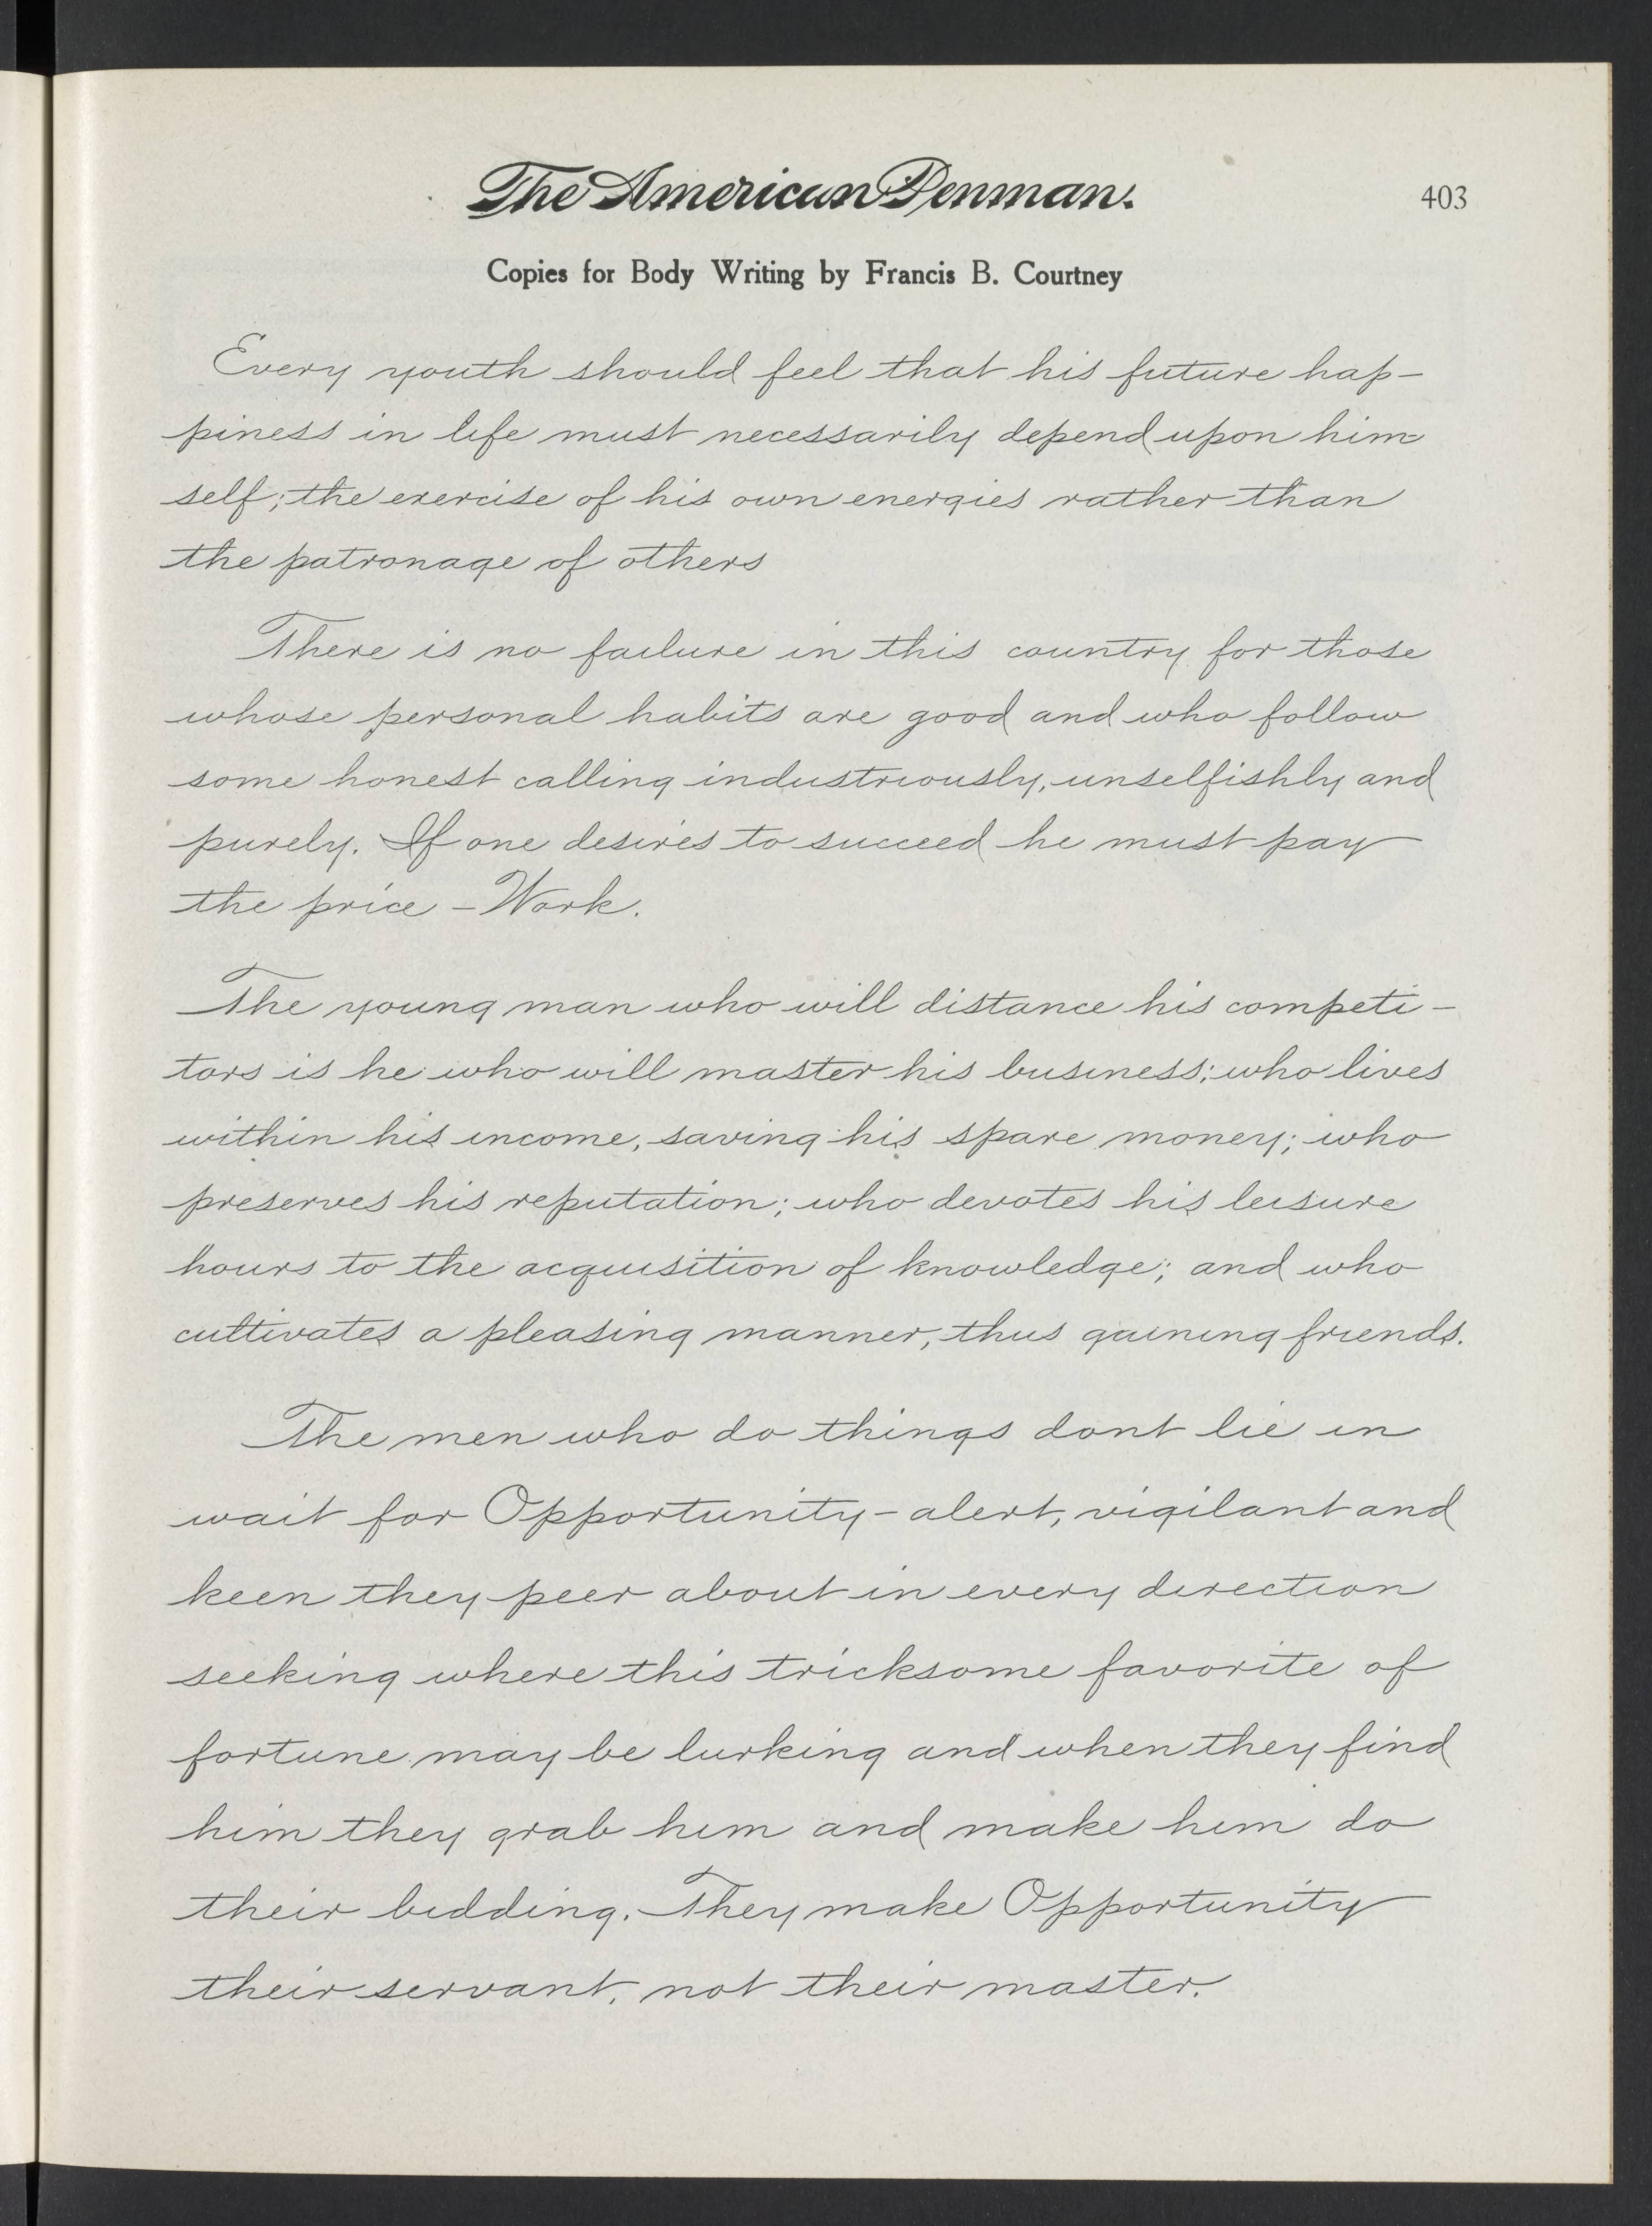 The American Penman.
403
Copies for Body Writing by Francis B. Courtney
Every youth should feel that his future hap-
piness in life must necessarily depend upon him=
self; the exercise of his own energies rather than
the patronage of others
There is no failure in this country for those
whose personal habits are good and who follow
some honest calling industriously, unselfishly and
purely. If one desires to succeed he must pay
the price - Work.
The young man who will distance his competi-
tors is he who will master his business; who lives
within his income, saving his spare money; who
preserves his reputation; who devotes his leisure
hours to the acquisition of knowledge; and who
cultivates a pleasing manner, thus gaining friends.
The men who do things dont lie in
wait for Opportunity - alert, vigilant and
keen they peer about in every direction
seeking where this tricksome favorite of
fortune may be lurking and when they find
him they grab him and make him do
their bidding. They make Opportunity
their servant, not their master.